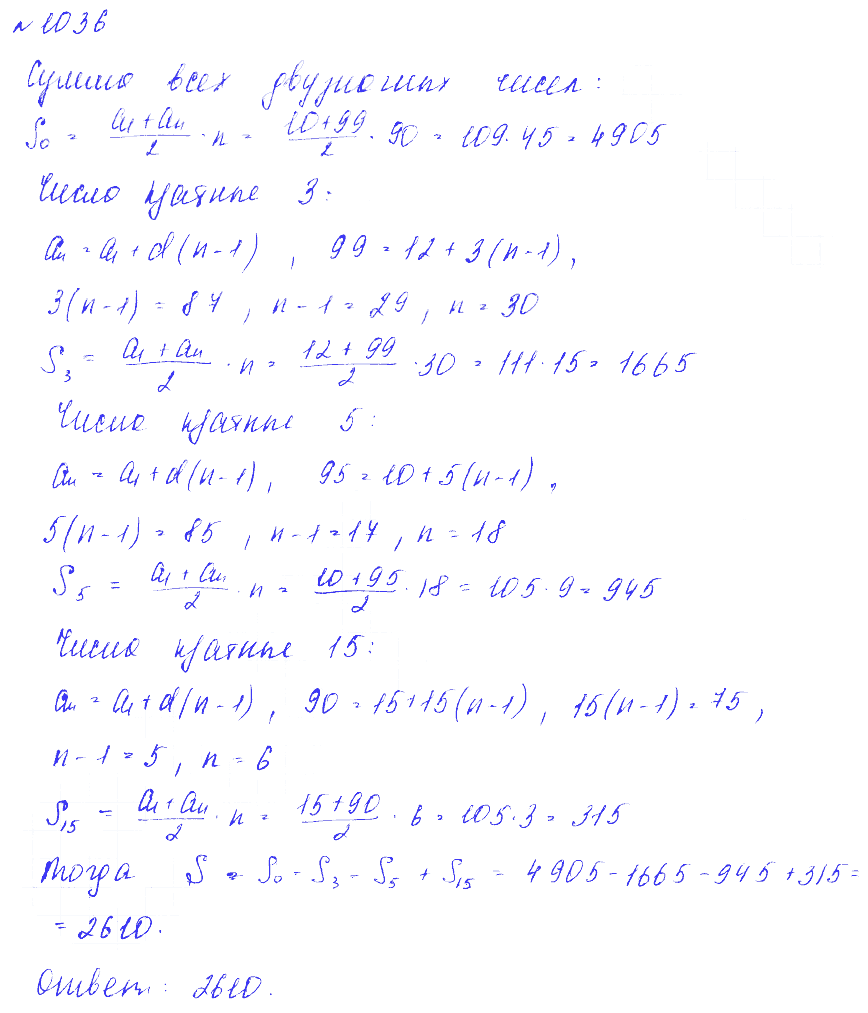 №1036
Сумма всех двузначных чисел:
S₀ = (a₁ + aₙ)/2 · n = (10+99)/2 · 90 = 109 · 45 = 4905
Число кратные 3:
aₙ = a₁ + d(n-1), 99 = 12 + 3(n-1),
3(n-1) = 87, n-1 = 29, n = 30
S₃ = (a₁ + aₙ)/2 · n = (12+99)/2 · 30 = 111 · 15 = 1665
Число кратные 5:
aₙ = a₁ + d(n-1), 95 = 10 + 5(n-1),
5(n-1) = 85, n-1 = 17, n = 18
S₅ = (a₁ + aₙ)/2 · n = (10+95)/2 · 18 = 105 · 9 = 945
Число кратные 15:
aₙ = a₁ + d(n-1), 90 = 15+15(n-1), 15(n-1) = 75,
n-1 = 5, n = 6
S₁₅ = (a₁ + aₙ)/2 · n = (15+90)/2 · 6 = 105 · 3 = 315
Тогда S = S₀ - S₃ - S₅ + S₁₅ = 4905 - 1665 - 945 + 315 =
= 2610.
Ответ: 2610.